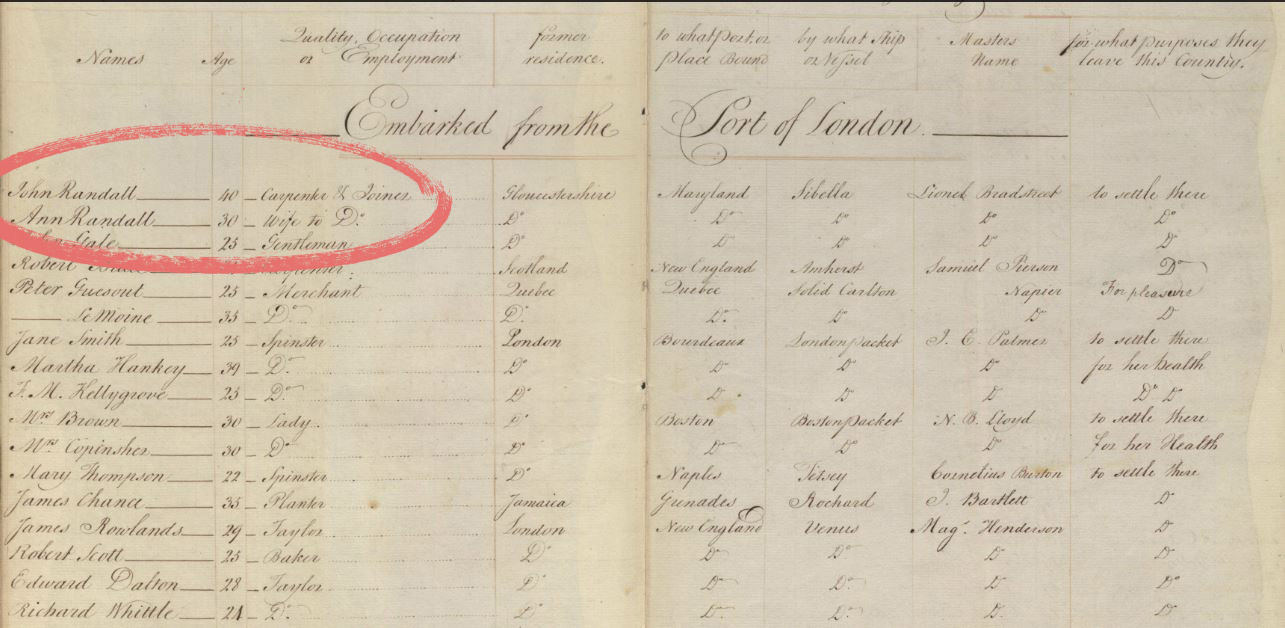 Names Age Quality, Occupation or Employment former residence. to what Port, or Place Bound by what Ship or Vessel Masters Name for what purposes they leave this Country.
Embarked from the Port of London
John Randall 40 Carpenter & Joiner Gloucestershire Maryland Sibella Lionel Bradstreet to settle there
Ann Randall 30 Wife to Do. Do Do Do Do Do
Gale 25 Gentleman Do Do Do Do Do
Robert Scotland New England Amherst Samuel Pierson Do
Peter Guesout 25 Merchant Quebec Quebec Solid Carlton Napier For pleasure
Le Moine 35 Do. Do. Do. Do Do Do
Jane Smith 25 Spinster London Bourdeaux London packet J. C. Palmer to settle there
Martha Hankey 39 Do. Do Do Do Do for her health
F. M. Kellygrove 25 Do. Do Do Do Do Do Do
Mrs Brown 30 Lady Do Boston Boston packet N. B. Lloyd to settle there
Mrs Copinsher 30 Do. Do Do Do Do For her Health
Mary Thompson 22 Spinster Do Naples Tetsey Cornelius Burton to settle there
James Chance 35 Planter Jamaica Grenades Rochard J. Bartlett Do
James Rowlands 29 Taylor London New England Venus Mag. Henderson Do
Robert Scott 25 Baker Do Do Do. Do Do
Edward Dalton 28 Taylor Do Do Do. Do Do
Richard Whittle 24 Do. Do Do. Do. Do. Do